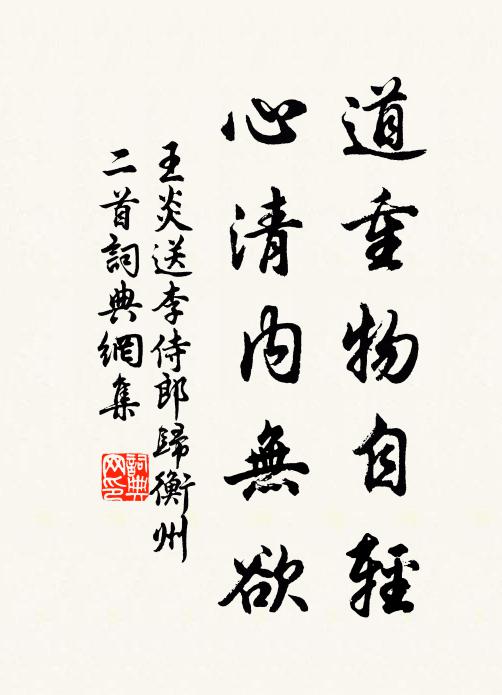 道重物自輕
心清内無欲
王炎送李侍郎歸衡州
二首詞典網集
詞典
网印